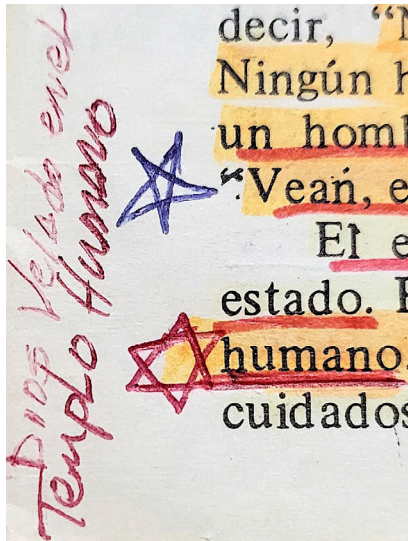 Dios Velado en el
Templo Humano
decir, “N
Ningún h
un homb
“Vean, e
El e
estado. P
humano.
cuidados